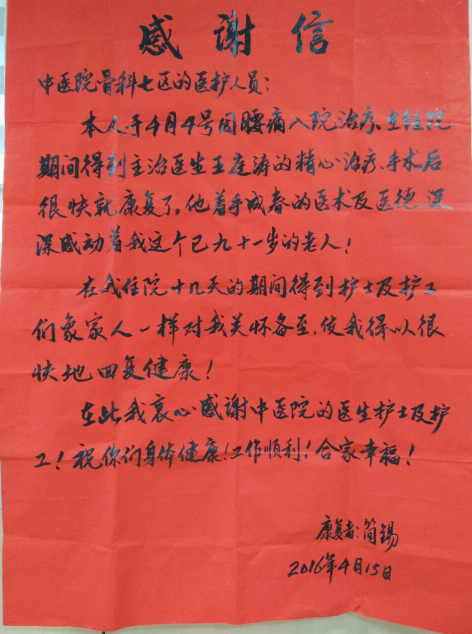 感谢信
中医院骨科七区的医护人员：
本人于4月4号因腰痛入院治疗、在住院
期间得到主治医生王庭涛的精心治疗、手术后
很快就康复了。他着手成春的医术及医德、深
深感动着我这个已九十一岁的老人！
在我住院十几天的期间得到护士及护工
们象家人一样对我关怀备至，使我得以很
快地回复健康！
在此我衷心感谢中医院的医生护士及护
工！祝你们身体健康！工作顺利！合家幸福！
康复者：简锡
2016年4月15日